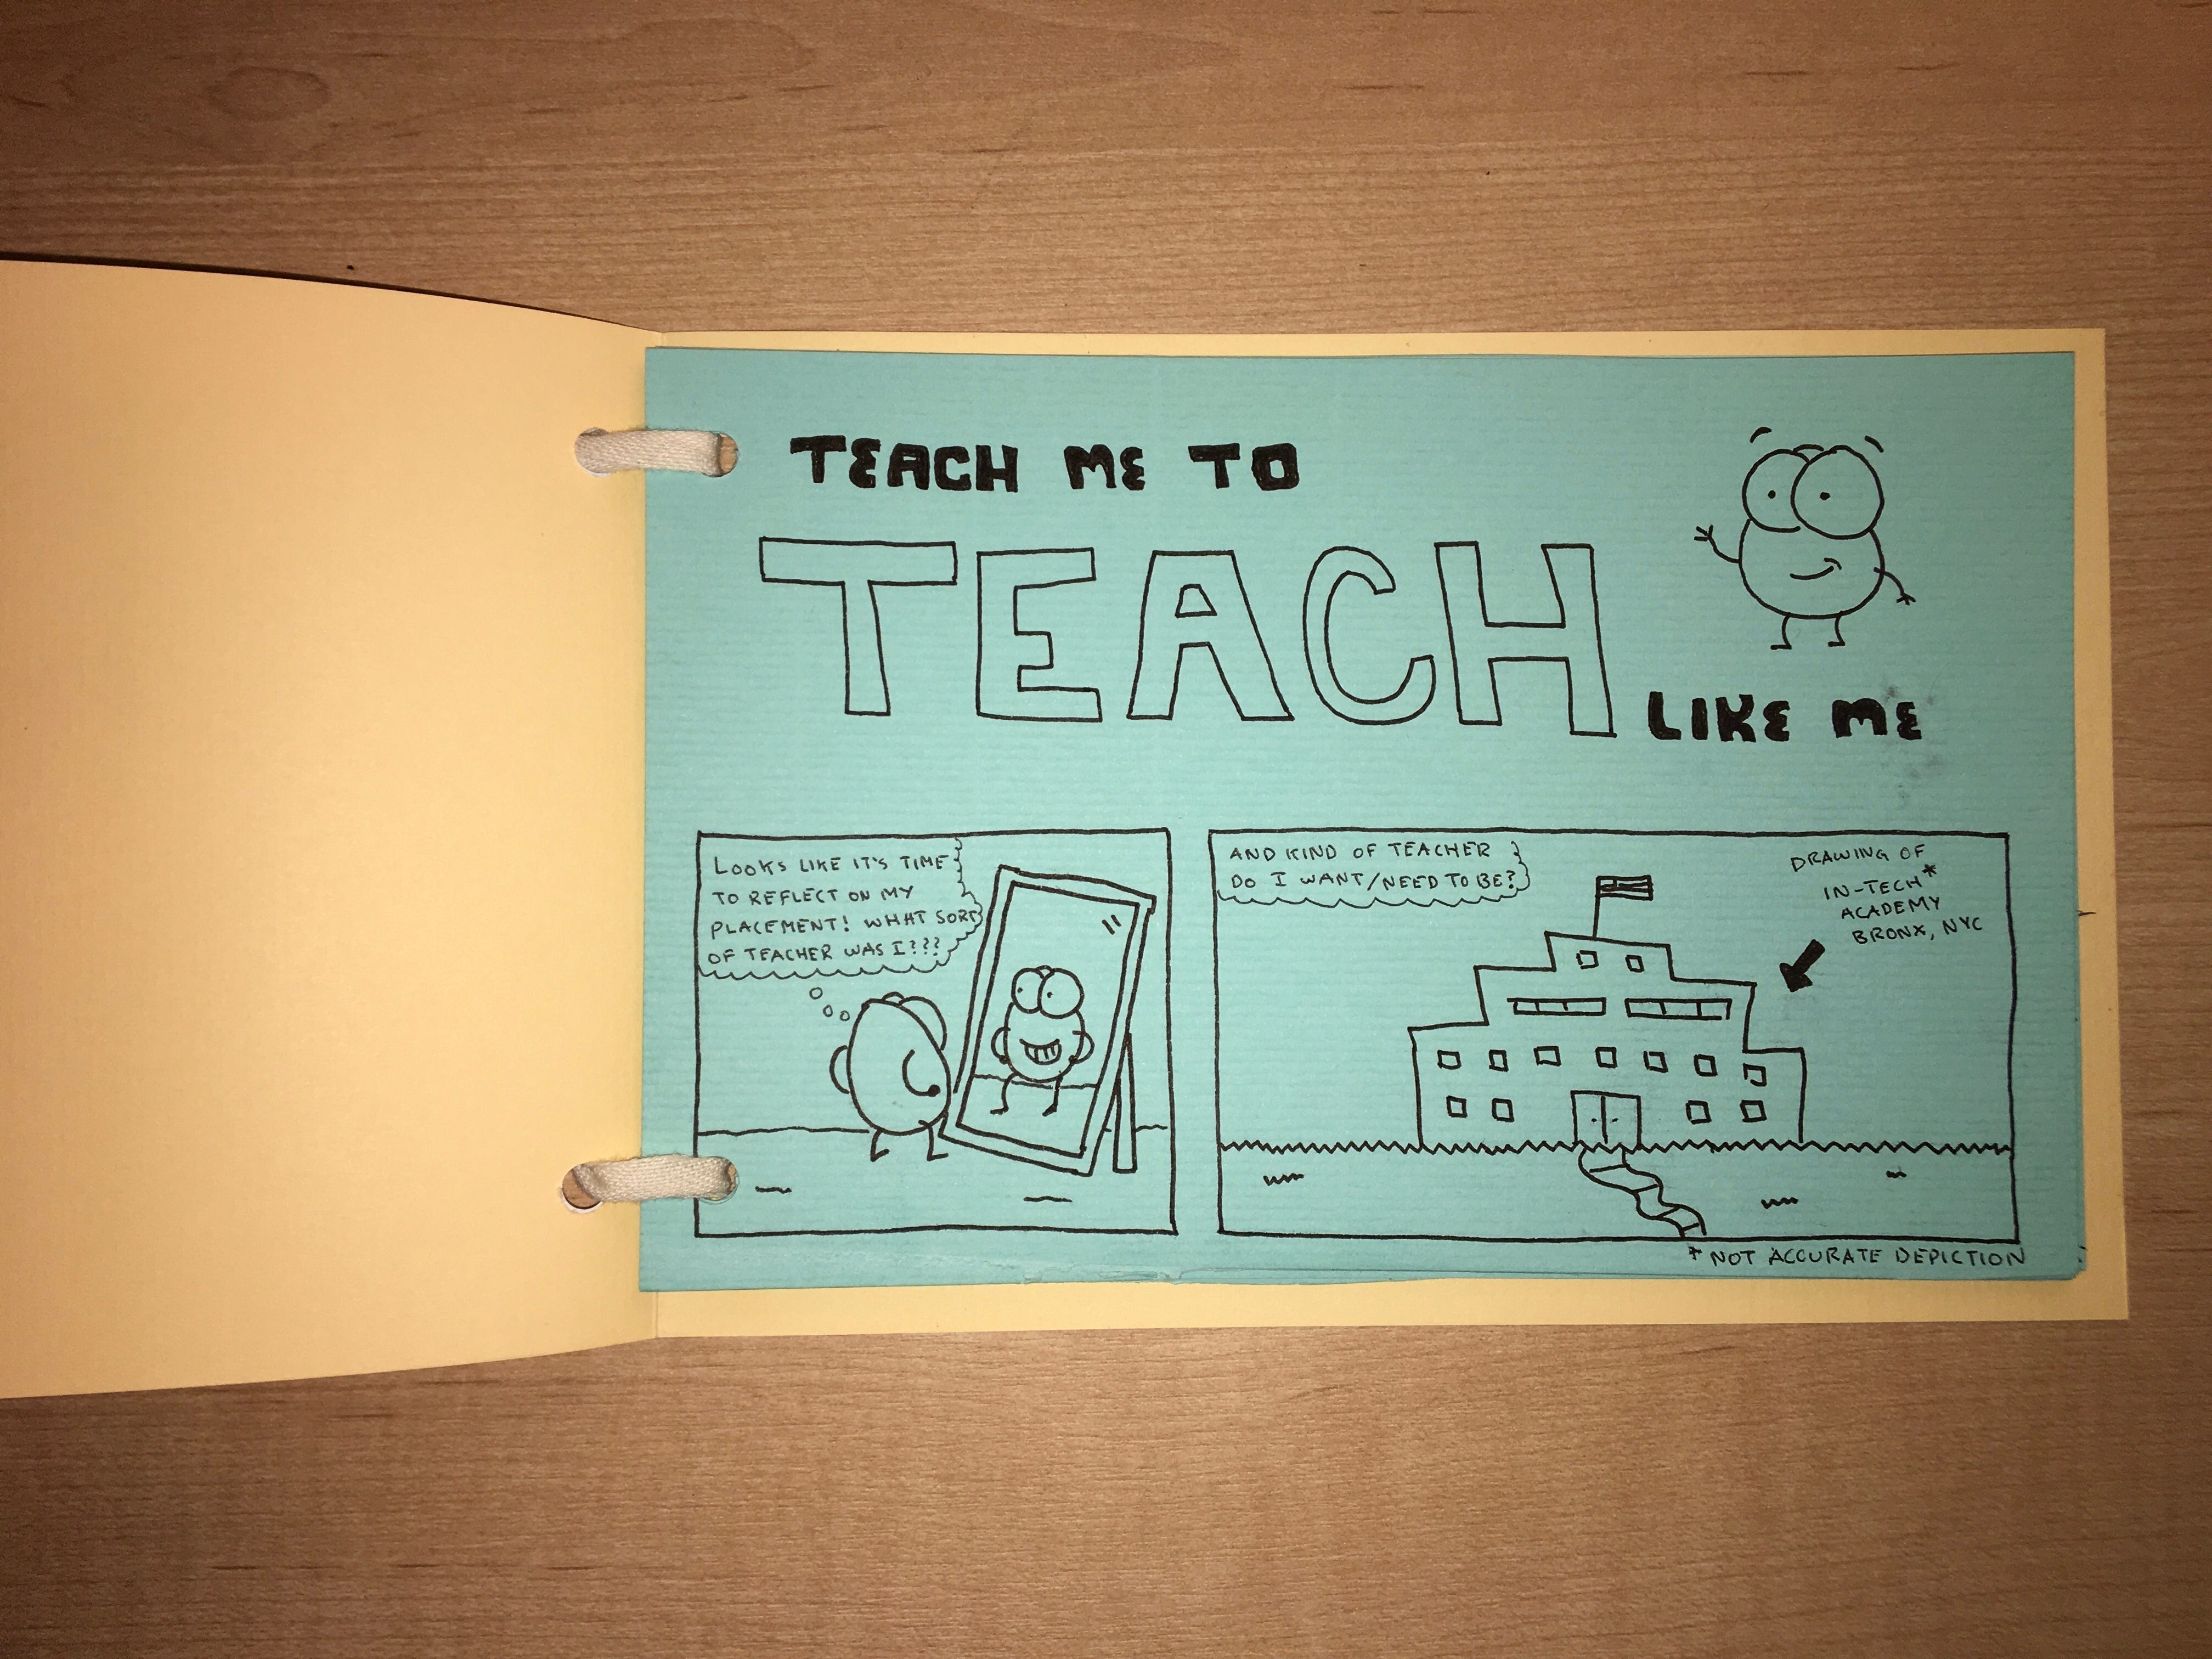 TEACH ME TO
TEACH
LIKE ME
LOOKS LIKE IT'S TIME
TO REFLECT ON MY
PLACEMENT! WHAT SORT
OF TEACHER WAS I???
AND KIND OF TEACHER
DO I WANT/NEED TO BE?
DRAWING OF
IN-TECH*
ACADEMY
BRONX, NYC
* NOT ACCURATE DEPICTION